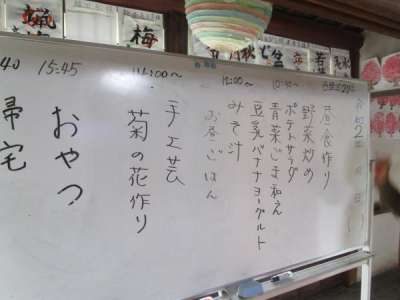 令和2年 月 日
10:40〜
昼食作り
野菜炒め
ポテトサラダ
青菜ごま和え
豆乳バナナヨーグルト
みそ汁
12:00〜
お昼ごはん
14:00〜
手工芸
菊の花作り
15:45
おやつ
帰宅
梅
秋